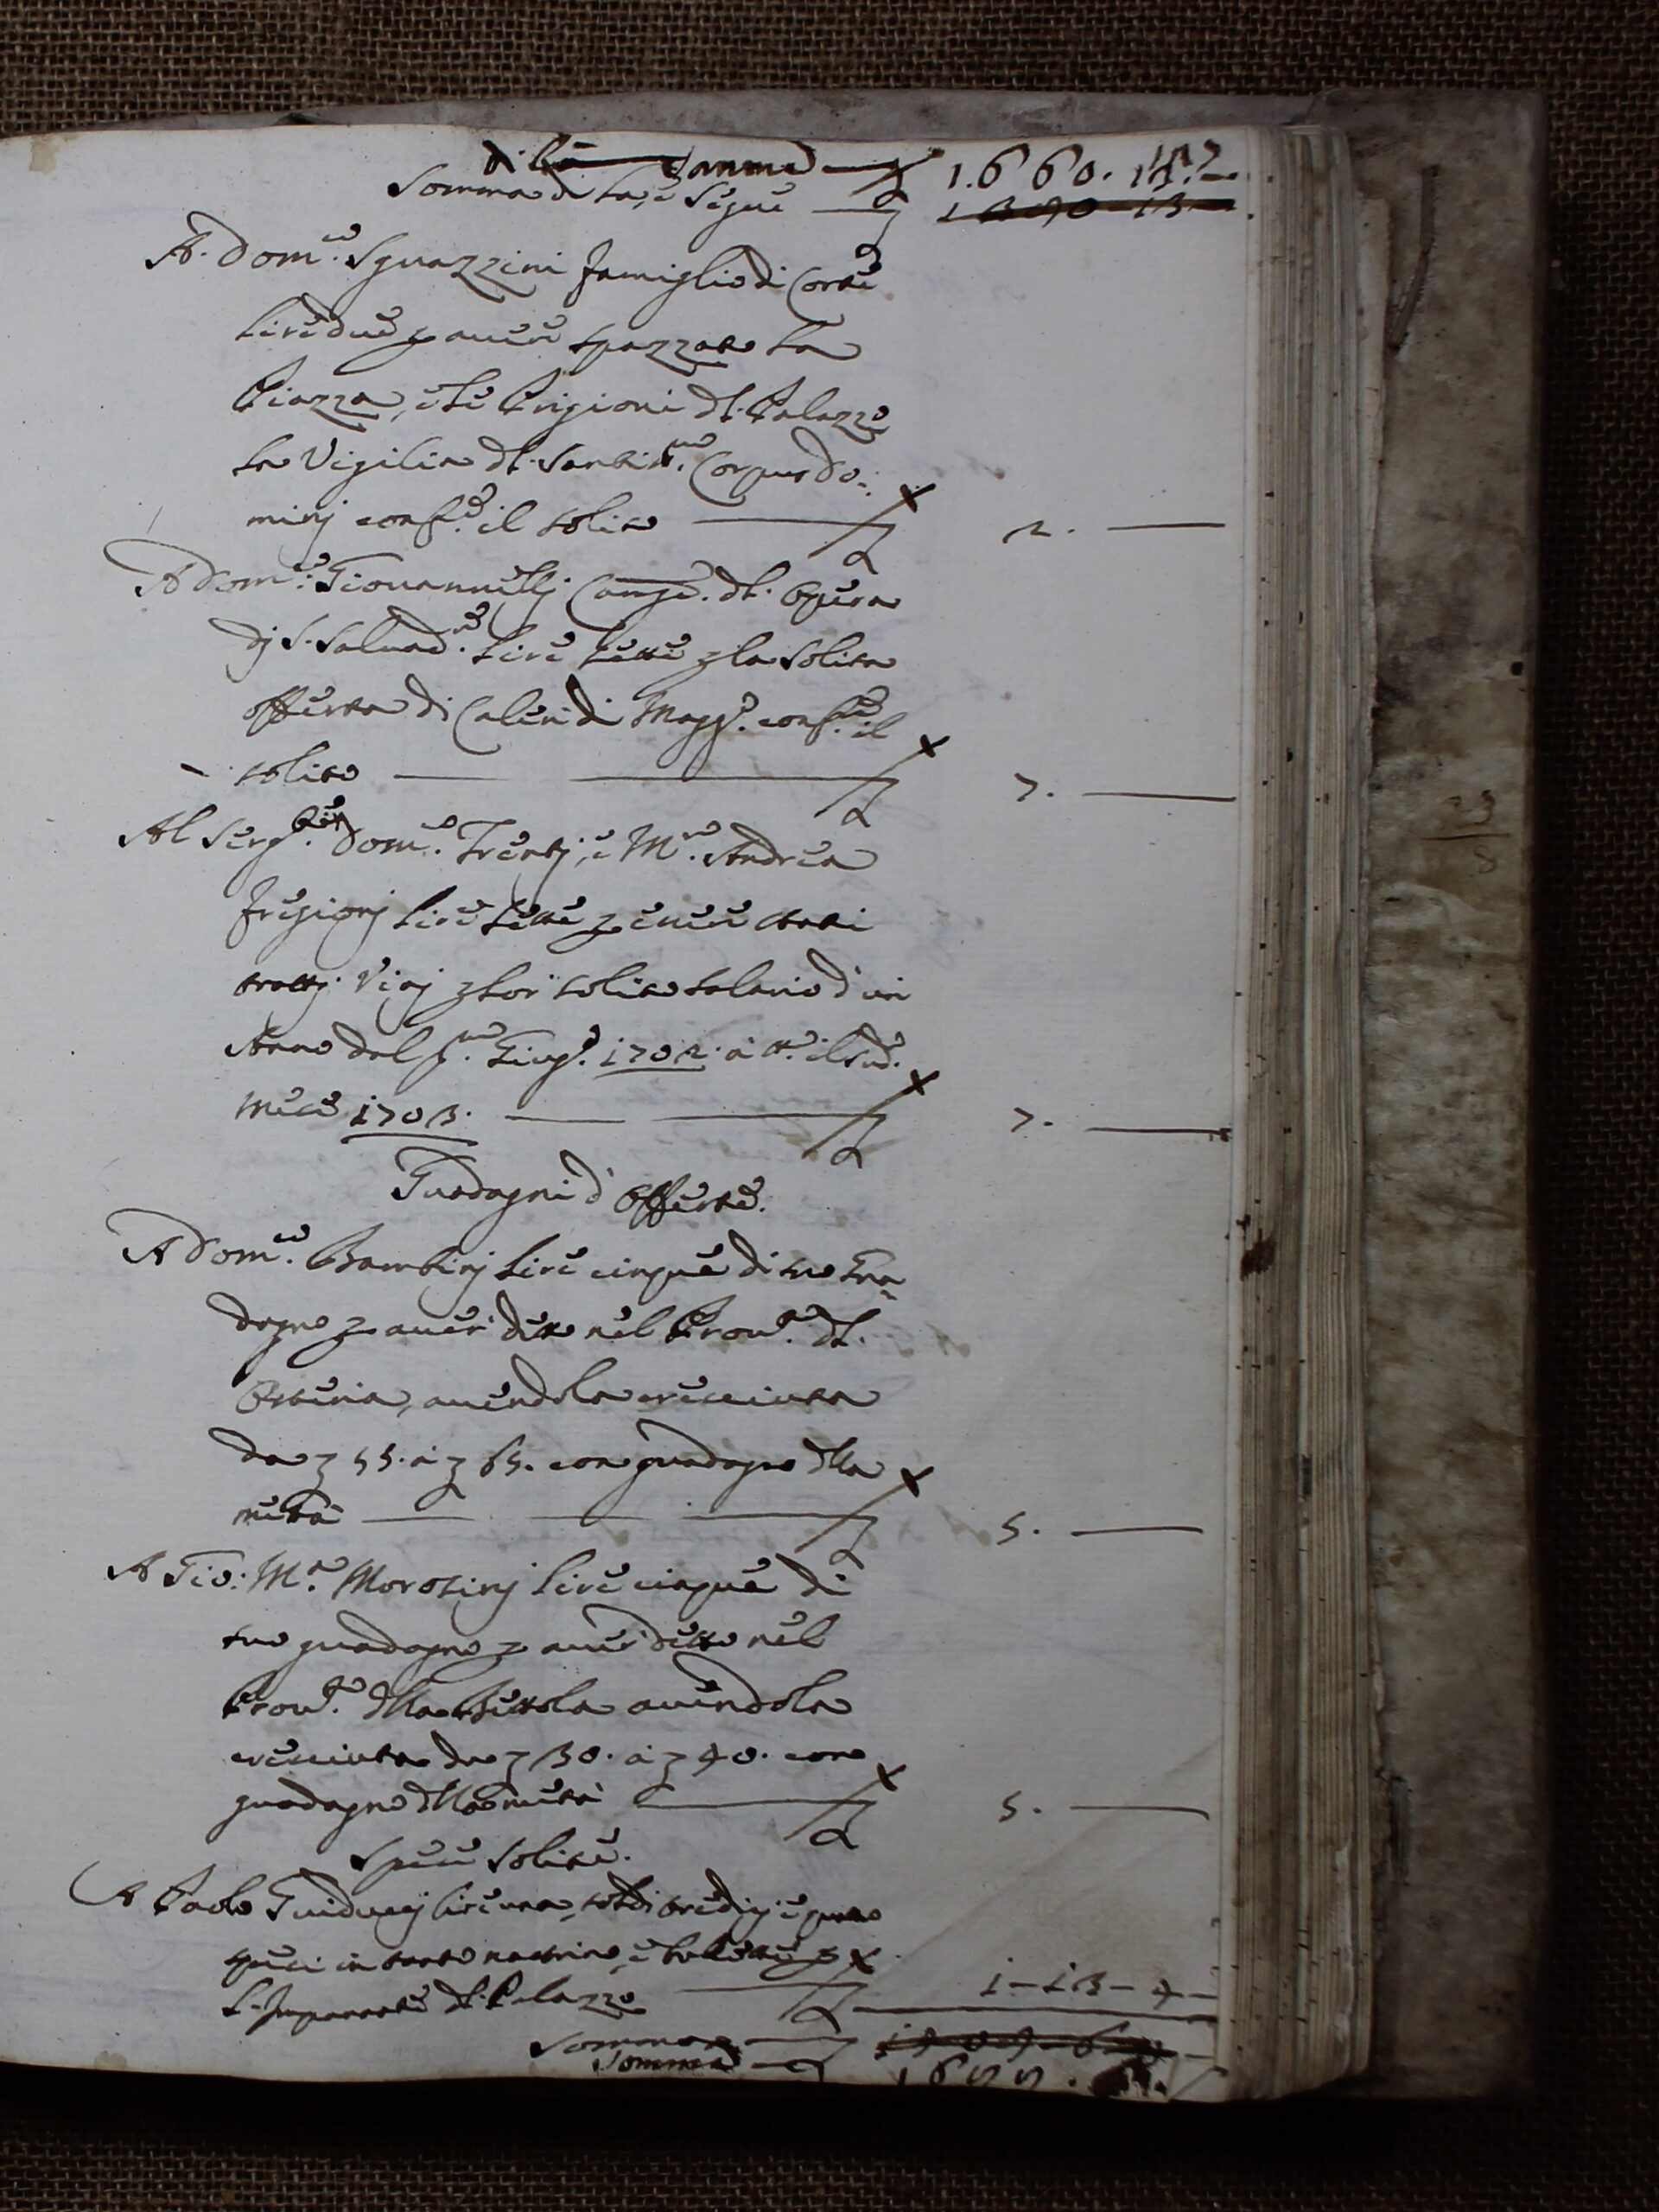 di là Somma — £ 1660. 18.2
Somma di là, e Segue — £ 1390 - 13 —
A. Dom.co Sguazzini famiglio di Corte
lire due p auere spazzato la
Piazza, e le Prigioni dl. Palazzo
la Vigilia dl. Santiss.mo Corpus Do:
minj conf.e il solito — £ 2. —
A Dom.co Giouannellj Camge. dl. Opera
dj S. Saluad.re lire sette p la solita
offerta di Calen di Magg.o conf.e il
solito — £ 7. —
Al Serg.te Dom.co Trentj, e M.ro Andrea
Frigionj lire sette p essere stati
trattj Viaj p lor solito salario d'un
Anno dal p.mo Giug.o 1702. a tt.o il sud.o
mese 1703. — £ 7. —
Guadagni d'Offerte.
A Dom.co Bambinj lire cinque di suo Gua
dagno p auer detto nel Prou.o dl.
Osteria, auendola cresciuta
da £ 55. a £ 65. con guadagno dlla
metà — £ 5. —
A Gio: M.a Morosinj lire cinque di
suo guadagno p auer detto nel
Prou.o dlla Bettola auendola
cresciuta da £ 30. a £ 40. con
guadagno dlla metà £ 5. —
Spese Solite.
A Paolo Guiduccj lire una, soldi tredicj e quatto
spesi in tanto nastrino, e bullette p
l'Imparato dl. Palazzo £ 1 - 13 - 4 —
Somma — £
Somma — £ 1688.